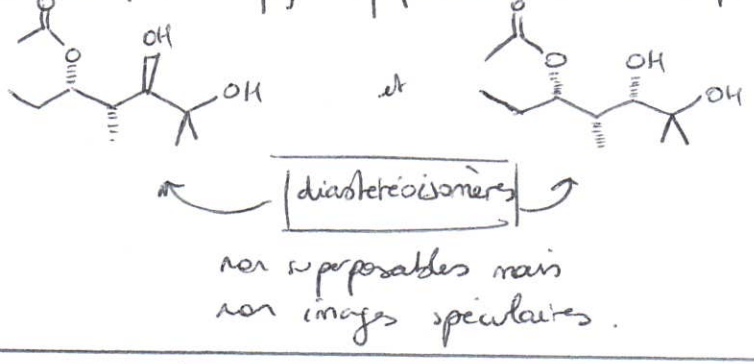 O O
O OH O OH
OH et OH
diastéréoisomères
non superposables mais
non images spéculaires.